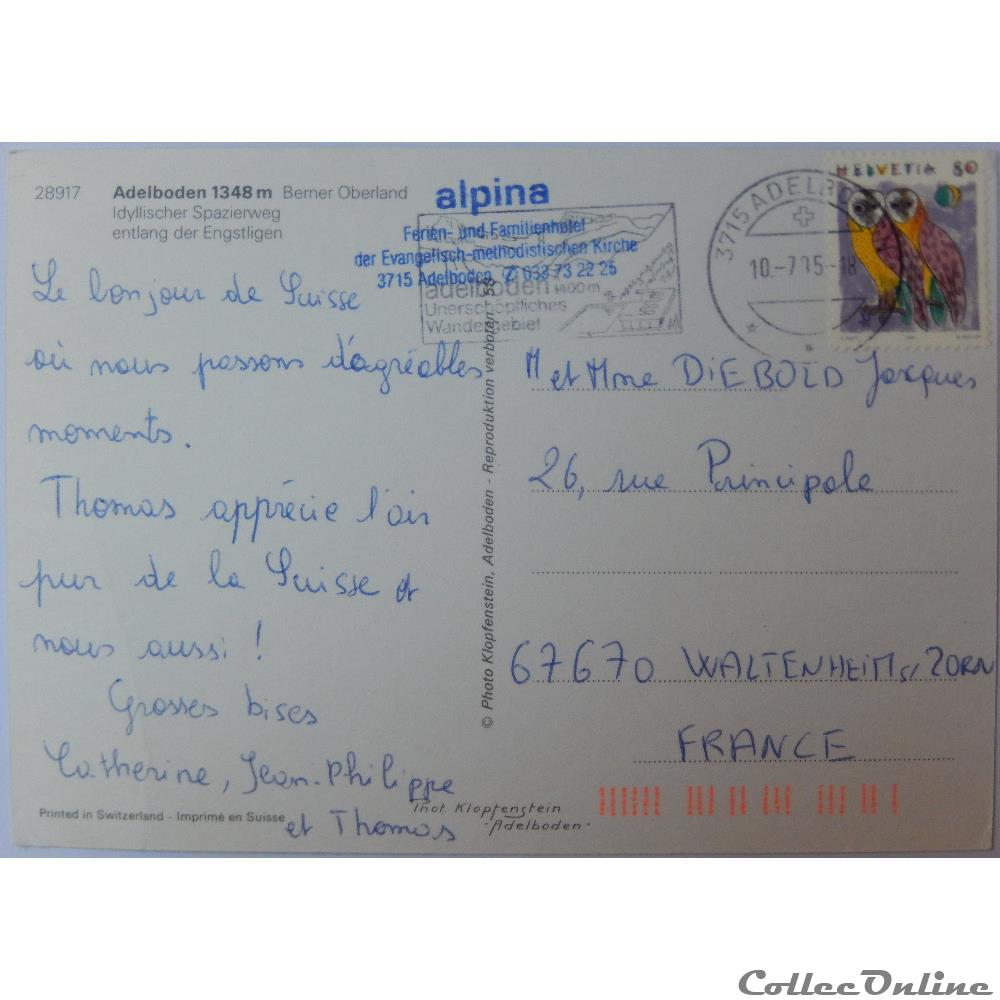 28917 Adelboden 1348 m Berner Oberland
Idyllischer Spazierweg
entlang der Engstligen
alpina
Ferien- und Familienhotel
der Evangelisch-methodistischen Kirche
3715 Adelboden ✆ 033 73 22 25
adelboden 1400 m
Unerschöpfliches
Wandergebiet
3715 ADELBO
10.-7.95-18
HELVETIA 80
Le bonjour de Suisse
où nous passons d'agréables
moments.
Thomas apprécie l'air
pur de la Suisse et
nous aussi !
Grosses bises
Catherine, Jean-Philippe
et Thomas
© Photo Klopfenstein, Adelboden - Reproduktion verboten
M et Mme DIEBOLD Jacques
26, rue Principale
67670 WALTENHEIM s/ ZORN
FRANCE
Printed in Switzerland - Imprimé en Suisse
Phot. Klopfenstein
-Adelboden-
CollecOnline